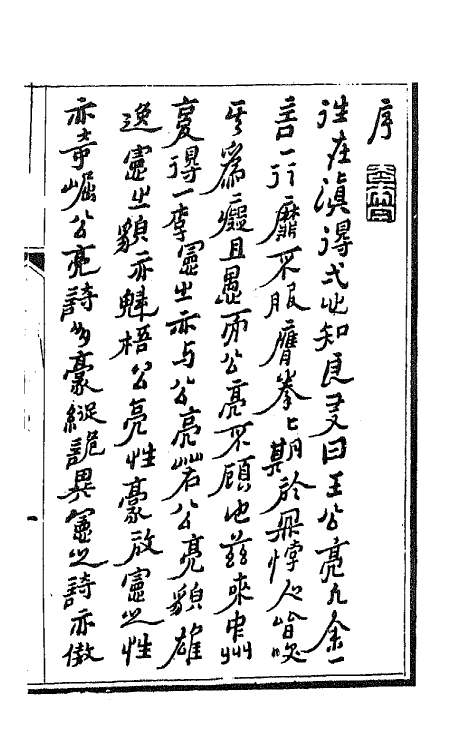 序
往在滇得弍此知良友曰王公亮凡余一
言一行靡不服膺拳〻期於毋悖人皆咲
其為癡且愚而公亮不顧也茲來中州
复得一李憲之亦与公亮若公亮貌雄
逸憲之貌亦魁梧公亮性豪放憲之性
亦奇崛公亮詩多豪縱詭異憲之詩亦傲